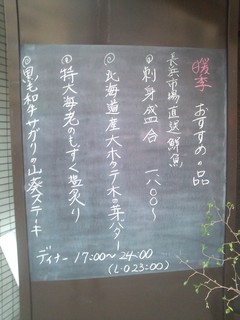 暖季 おすすめの品
長浜市場直送鮮魚
◎刺身盛合 一八〇〇〜
◎北海道産大ホタテ木の芽バター
◎特大海老のもずく塩炙り
◎黒毛和牛サガリの山葵ステーキ
ディナー 17:00〜24:00
(L.O 23:00)